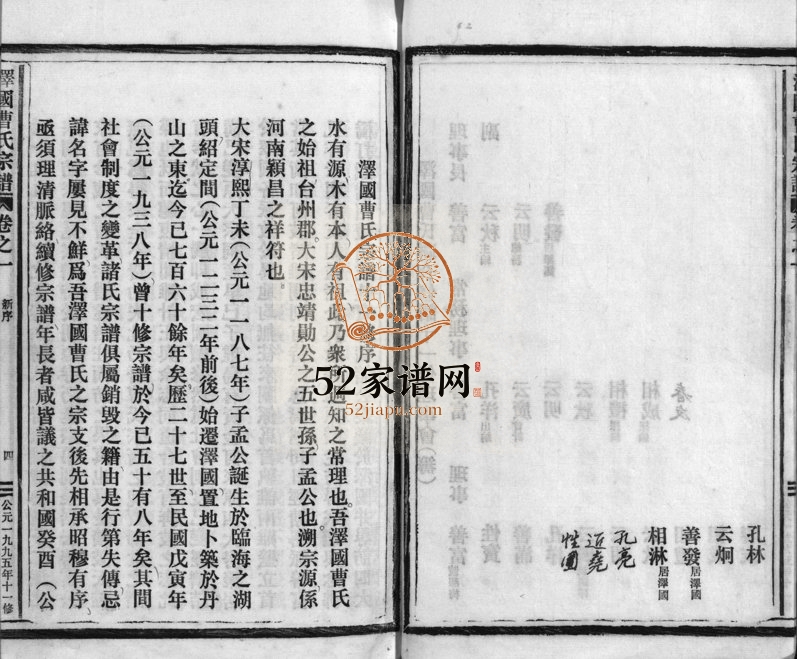 孔林
云炯
善發居澤國
相淋居澤國
孔亮
近堯
性圃
春友
澤國曹氏宗譜
序
水有源木有本人有祖此乃衆所週知之常理也吾澤國曹氏
之始祖台州郡大宋忠靖勛公之五世孫子孟公也溯宗源係
河南穎昌之祥符也
大宋淳熙丁未（公元一一八七年）子孟公誕生於臨海之湖
頭紹定間（公元一二三二年前後）始遷澤國置地卜築於丹
山之東迄今已七百六十餘年矣歷二十七世至民國戊寅年
（公元一九三八年）曾十修宗譜於今已五十有八年矣其間
社會制度之變革諸氏宗譜俱屬銷毀之籍由是行第失傳忌
諱名字屢見不鮮爲吾澤國曹氏之宗支後先相承昭穆有序
亟須理清脈絡續修宗譜年長者咸皆議之共和國癸酉（公
澤國曹氏宗譜 卷之一 新序 四 公元一九九五年十一修
52家谱网
52jiapu.com